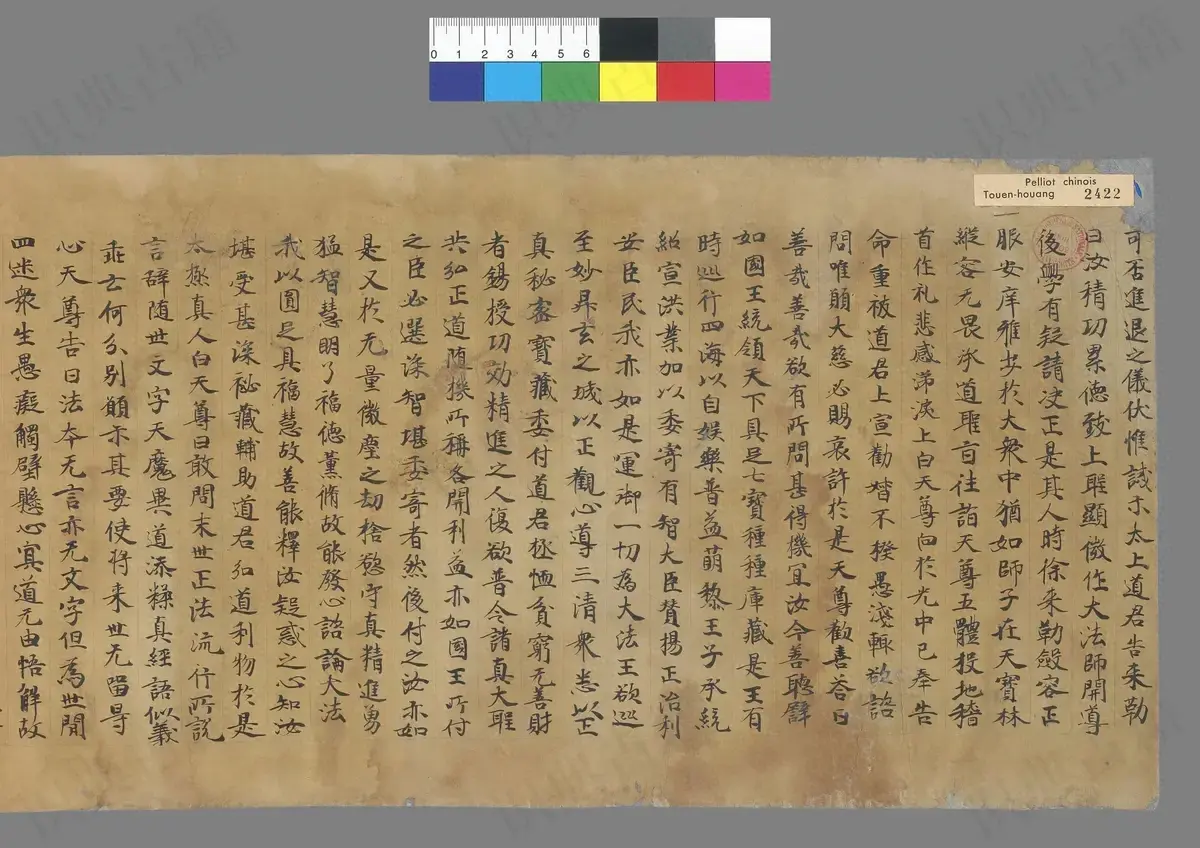 0 1 2 3 4 5 6
Pelliot chinois
Touen-houang 2422
可否進退之儀伏惟誡示太上道君告来勒
曰汝積功累德致上聖顯徵任大法師開導
後學有疑請决正是其人時徐来勒斂容正
服安庠雅步於大衆中猶如師子在天寶林
縱容无畏承道聖旨往詣天尊五體投地稽
首作礼悲感涕淚上白天尊向於光中已奉告
命重被道君上宣勸㬱不揆愚淺輙欲諮
問唯願大慈必賜哀許於是天尊勸善荅曰
善哉善哉欲有所問甚得機冝汝今善聽譬
如國王統領天下具足七寶種種庫藏是王有
時巡行四海以自娱樂普益萌黎王子承統
紹宣洪業加以委寄有智大臣賛揚正治利
安臣民我亦如是運御一切為大法王欲巡
至妙鼎玄之域以正觀心導三清衆悉以正
真秘密寶藏委付道君拯恤貧窮无善財
者錫授功効精進之人復欲普令諸真大聖
共弘正道随機所稱各開利益亦如國王所付
之臣必選深智堪委寄者然後付之汝亦如
是又於无量微塵之劫捨慾守真精進勇
猛智慧明了福德薰脩故能發心諮論大法
我以圓足具福慧故善能釋汝疑惑之心知汝
堪受甚深祕藏輔助道君弘道利物於是
太極真人白天尊曰敢問末世正法流行所說
言辞随世文字天魔異道添糅真經語似義
乖云何分別願示其要使将来世无畱㝵
心天尊告曰法本无言亦无文字但為世間
四迷衆生愚癡觸壁懸心冥道无由悟解故